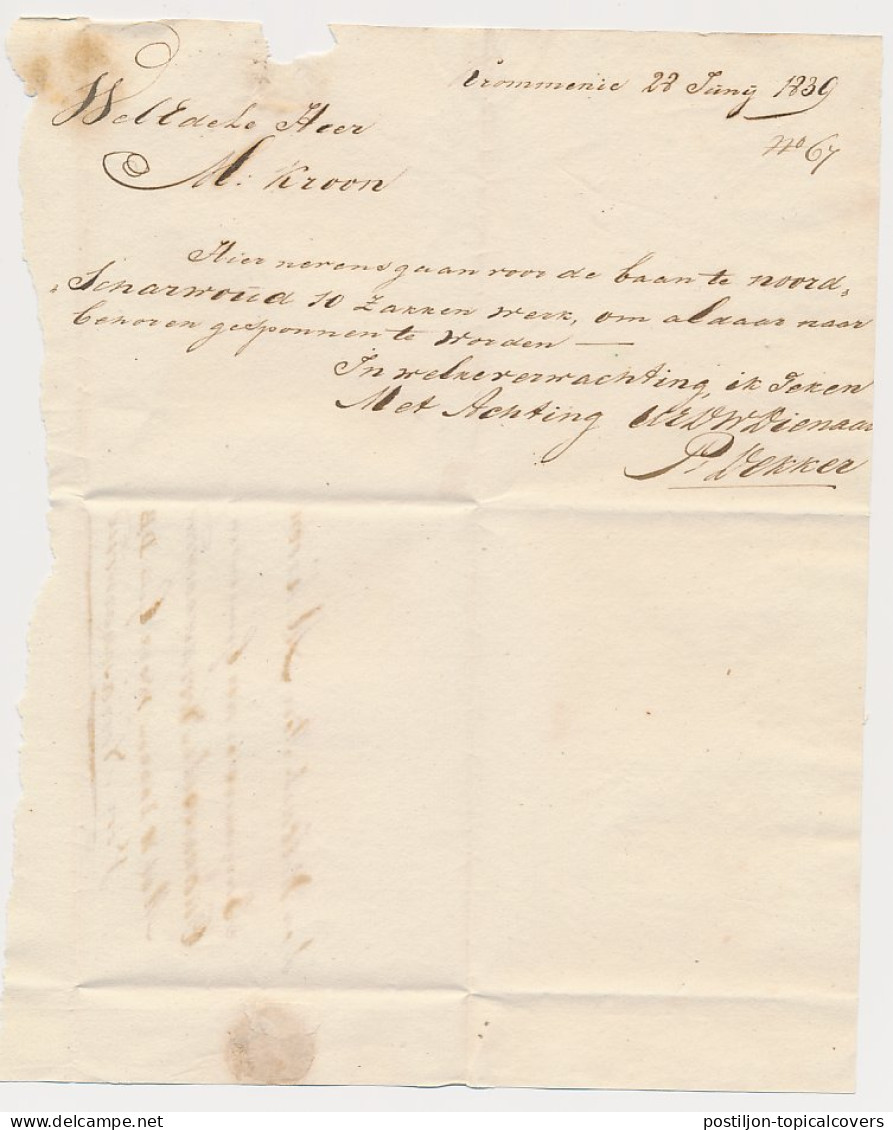 Crommenie 28 Junij 1839
No 67
Wel Edele Heer
M: Kroon
Hier nevens gaan voor de baan te noord„
„Scharwoud 10 Zakken werk, om aldaar naar
behoren gesponnen te worden —
In welke verwachting, ik Teken
Met Achting UEDWDienaar
P: Dekker
postiljon-topicalcovers